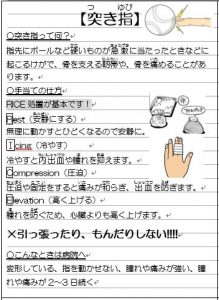 【突き指】
つ ゆび
○突き指って何？
指先にボールなど硬いものが急激に当たったときなどに
起こるけがで、骨を支える靭帯や、骨を痛めることがあ
ります。
○手当ての仕方
RICE 処置が基本です！
Rest（安静にする）
無理に動かすとひどくなるので安静に。
Icing（冷やす）
冷やすと内出血や腫れを抑えます。
Compression（圧迫）
圧迫や固定をすると痛みが和らぎ、出血を防ぎます。
Elevation（高く上げる）
腫れを防ぐため、心臓よりも高く上げます。
×引っ張ったり、もんだりしない!!!!
○こんなときは病院へ
変形している、指を動かせない、腫れや痛みが強い、腫
れや痛みが２～３日続く